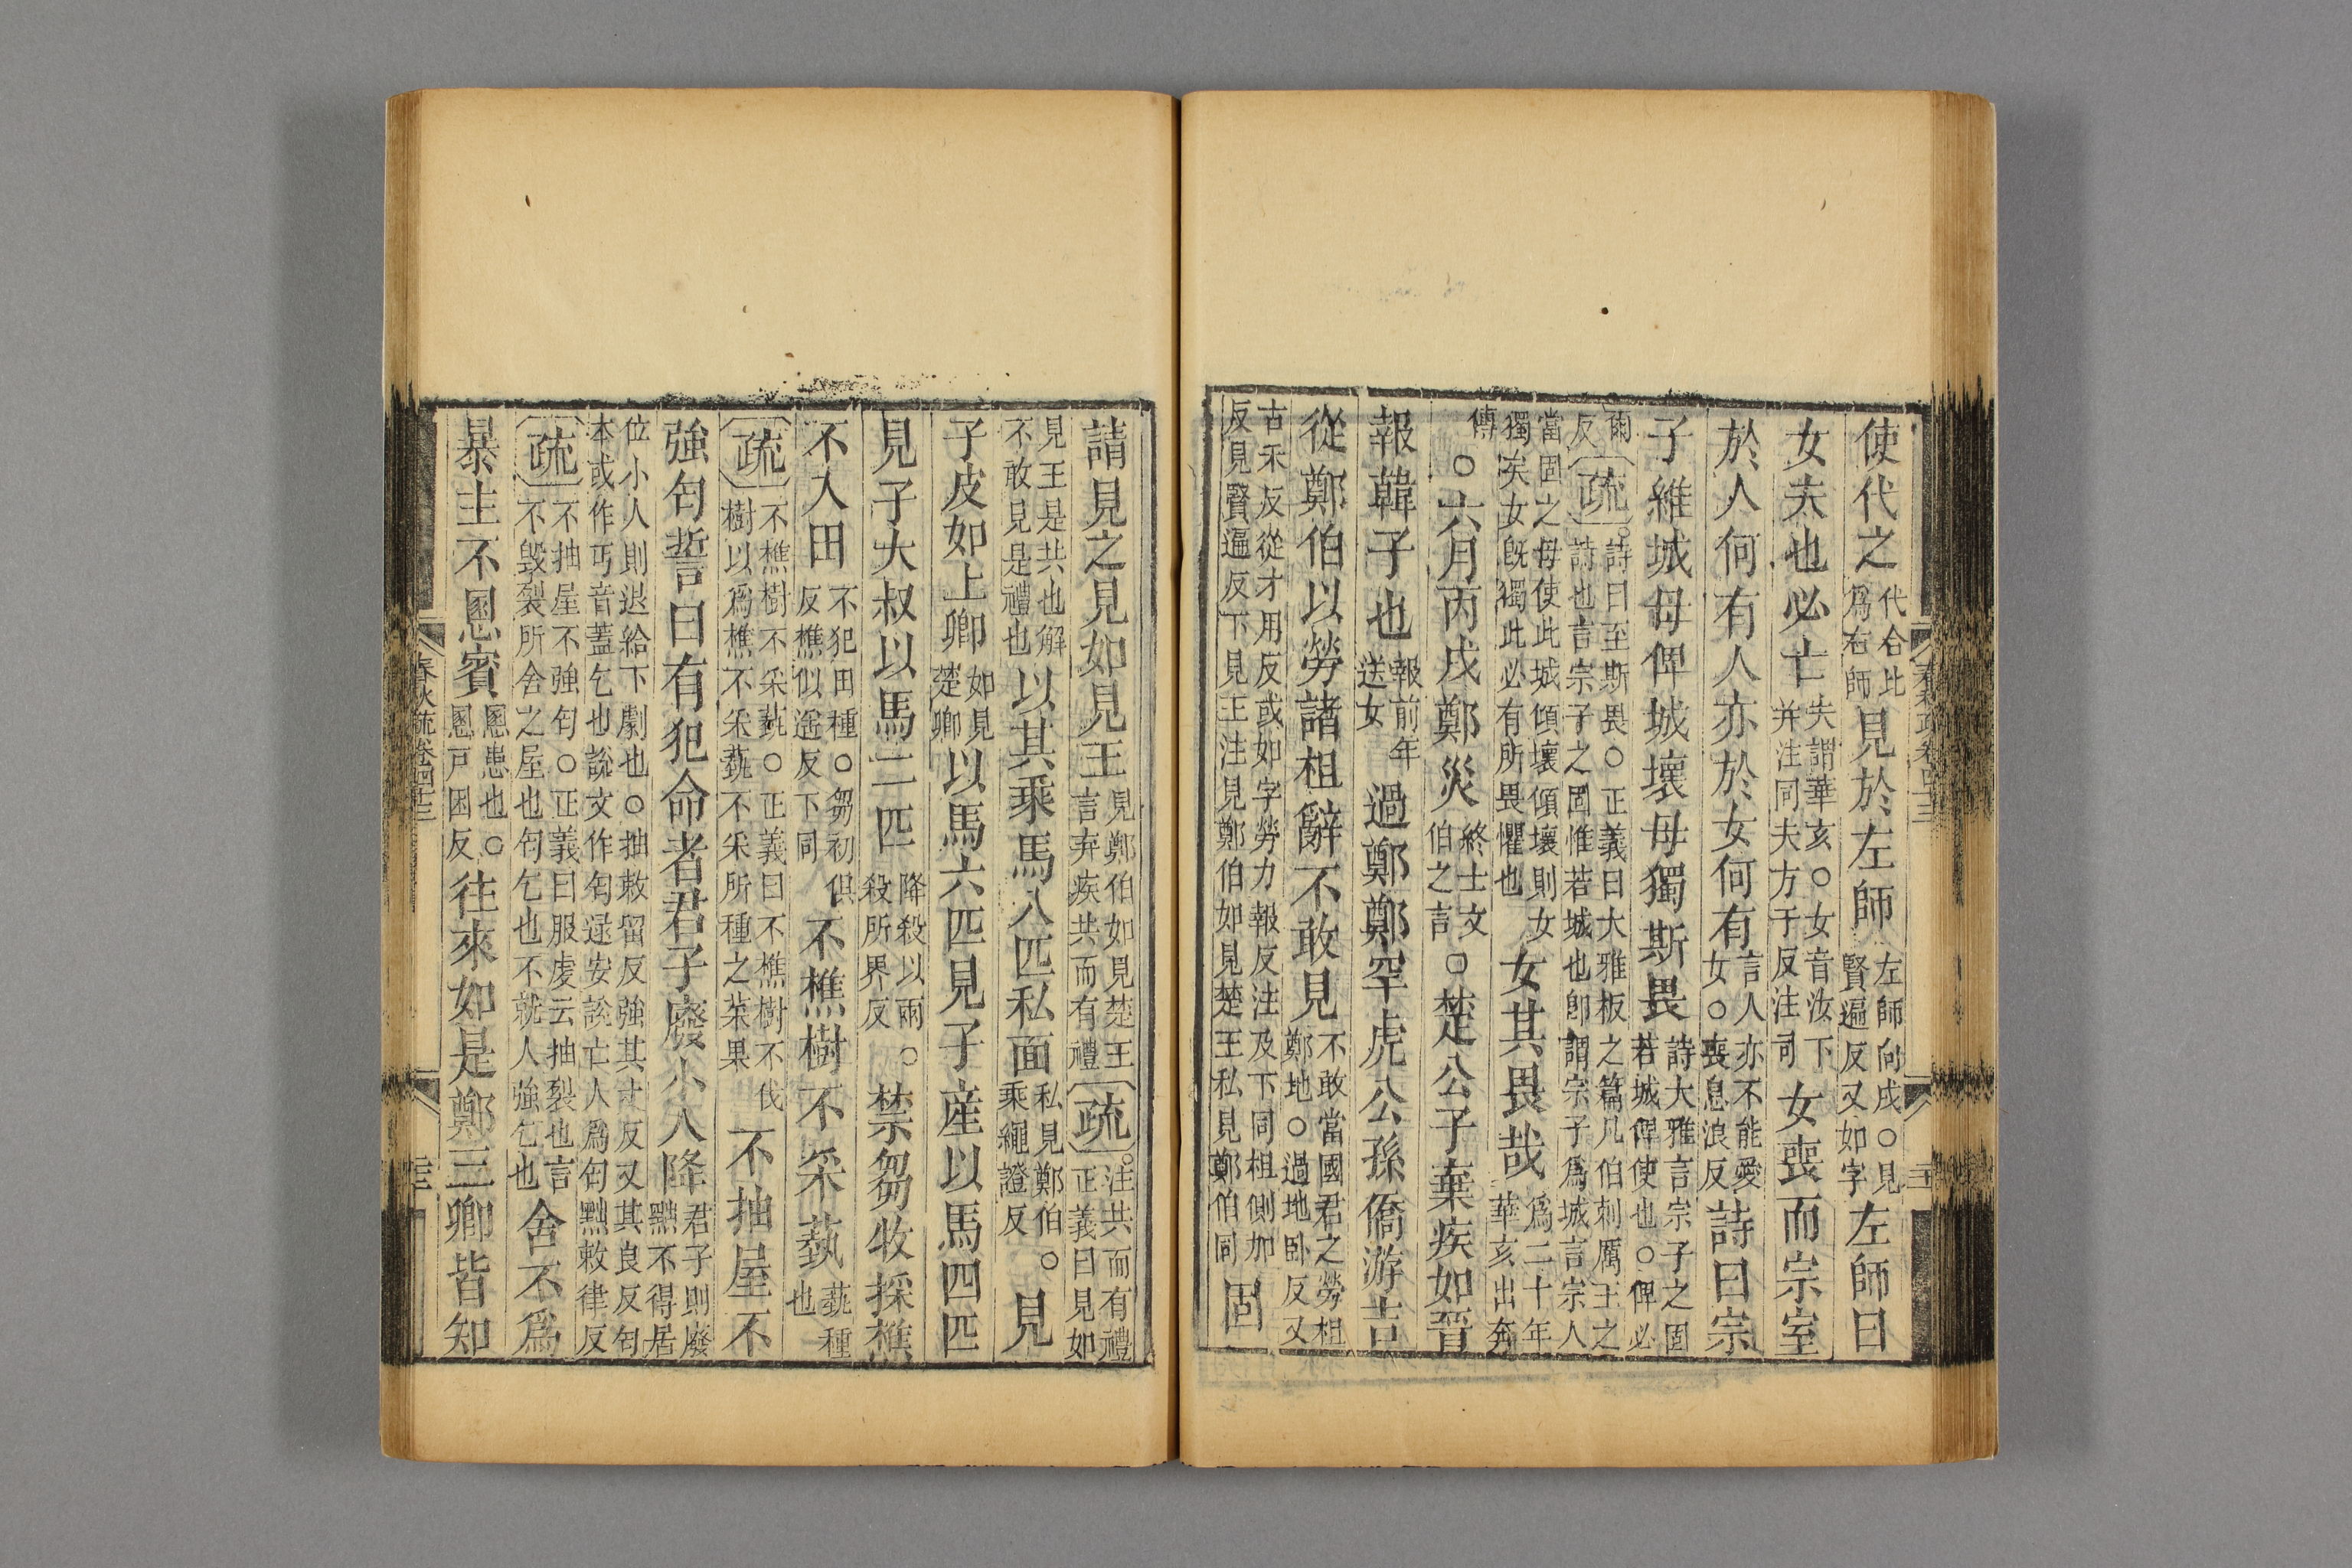 使代之代合比爲右師見於左師左師向戌○見賢遍反又如字左師曰
女夫也必亡夫謂華亥○女音汝下并注同夫方于反注司女喪而宗室
於人何有人亦於女何有言人亦不能愛女○喪息浪反詩曰宗
子維城毋俾城壞毋獨斯畏詩大雅言宗子之固若城俾使也○俾必
爾反疏詩曰至斯畏○正義曰大雅板之篇凡伯刺厲王之詩也言宗子之固惟若城也卽謂宗子爲城言宗人
當固之毋使此城傾壞傾壞則女獨矣女旣獨此必有所畏懼也女其畏哉爲二十年華亥出奔
傳○六月丙戌鄭災終士文伯之言○楚公子棄疾如晉
報韓子也報前年送女過鄭鄭罕虎公孫僑游吉
從鄭伯以勞諸柤辭不敢見不敢當國君之勞柤鄭地○過地卧反又
古禾反從才用反或如字勞力報反注及下同柤側加反見賢遍反下見王注見鄭伯如見楚王私見鄭伯同固
請見之見如見王見鄭伯如見楚王言弃疾共而有禮疏注共而有禮○正義曰見如
見王是共也解不敢見是禮也以其乘馬八匹私面私見鄭伯○乘繩證反見
子皮如上卿如見楚卿以馬六匹見子產以馬四匹
見子大叔以馬二匹降殺以兩○殺所界反禁芻牧採樵
不入田不犯田種○芻初俱反樵似遙反下同不樵樹不采蓺蓺種也
疏不樵樹不采蓺○正義曰不樵樹不伐樹以爲樵不采蓺不采所種之菜果不抽屋不
強匄誓曰有犯命者君子廢小人降君子則廢黜不得居
位小人則退給下劇也○抽敕留反強其丈反又其良反匄本或作丐音蓋乞也說文作匄逯安說亡人爲匄黜敕律反
疏不抽屋不強匄○正義曰服虔云抽裂也言不毀裂所舍之屋也匄乞也不就人強乞也舍不爲
暴主不慁賓慁患也○慁戸困反往來如是鄭三卿皆知
春秋疏卷四十三